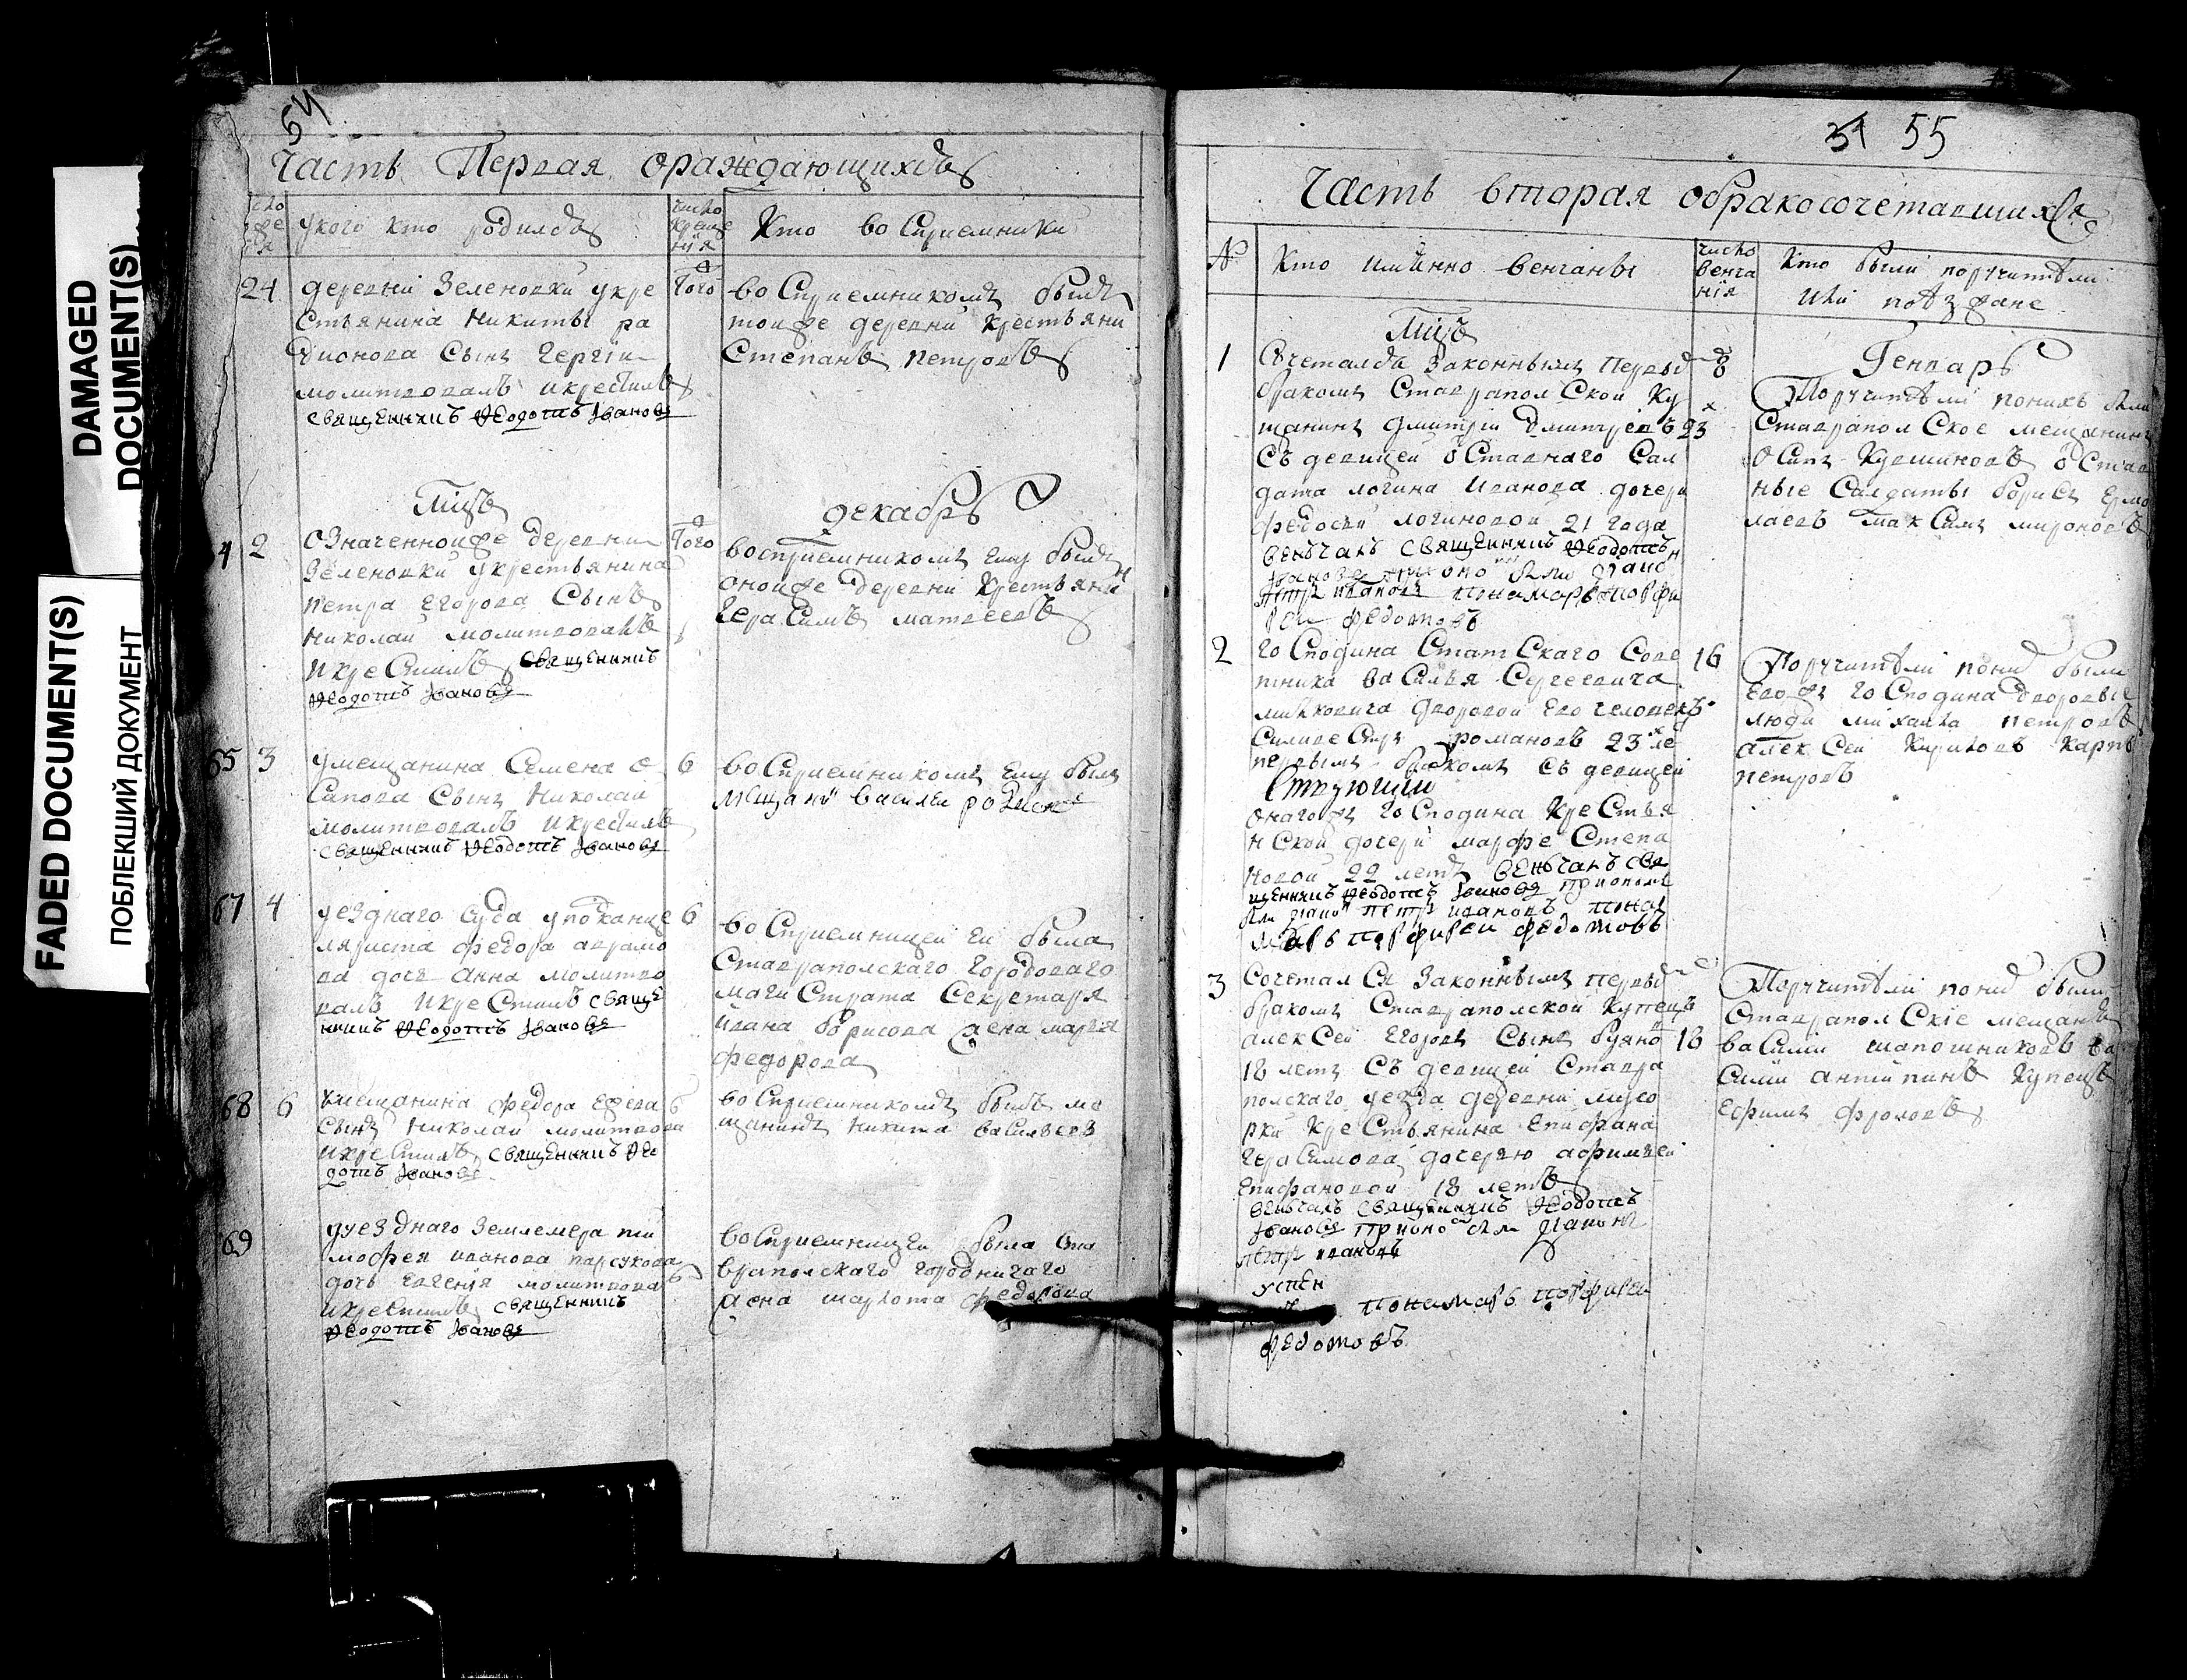 DAMAGED
DOCUMENT(S)
FADED DOCUMENT(S)
ПОБЛЕКШИЙ ДОКУМЕНТ
54
Часть Первая ораждающихсѣ
укого кто родилсѣ
Кто воСприемники
24 деревни Зеленовки укре
Стьянина Никиты ра
дионова Сынъ
молитвовалъ икрестилъ
священникъ Ѳеодотъ Iвановъ
Того
воСприемникомъ былъ
тоиже деревни крестьяни
Степанъ петровъ
Мцъ
декабрь
2 означеннойже деревни
Зеленовки укрестьянина
петра Егорова Сынъ
Николай молитвовалъ
икреСтилъ священникъ
Ѳеодотъ Iвановъ
Того
восприемникомъ ему былъ
онойже деревни крестьяни
гераСимъ матвеевъ
65 3 умещанина Семена о
Сипова Сынъ Николай
молитвовалъ икрестилъ
священникъ Ѳеодотъ Iвановъ
6
воСприемникомъ ему былъ
мещани василеи
67 4 уезднаго Суда упоканце
ляриста федора аврамо
ва дочь Анна молитво
валъ икреСтилъ свяще
нникъ Ѳеодотъ Iвановъ
6
воСприемницей ей была
Ставраполскаго городоваго
магиСтрата Секретаря
ивана борисова жена марья
федорова
68 6 умещанина федора
Сынъ Николай молитвова
икреСтилъ священникъ Ѳео
дотъ Iвановъ
6
воСприемникомъ былъ ме
щанинъ Никита ваСильевъ
69 ууезднаго Землемера ти
мофея иванова
дочь Евгения молитвова
икреСтилъ священникъ
Ѳеодотъ Iвановъ
6
воСприемницей была Ста
враполскаго городничаго
жена шарлота федорова
31 55
Часть вторая обракосочетавшихся
№
Кто имянно венчаны
число
венча
нiя
Кто были поручители
или поѣзжане
Мцъ
Генварь
1 Сочеталсь Законнымъ первы
бракомъ Ставраполской ку
щанинъ дмитрiй дмитревъ 23
Съ девицей отставнаго Сал
дата логина иванова дочери
федосьи логиновой 21 года
веньчалъ священникъ Ѳеодотъ
Iвановъ
Петръ ивановъ понамарь порфи
рей федотовъ
8
Поручители понихъ были
Ставрапол Ское мещанинъ
оСипъ отСтав
ные Салдаты борисъ Ермо
лаевъ макСимъ мироновъ
2 гоСподина СтатСкаго Сове
тника ваСилья Сергеевича
дворовой ево человекъ
СиливеСтръ романовъ 23 ле
первымъ бракомъ Съ девицей
онагожъ гоСподина креСтья
нСкой дочери марфе Степа
новой 22 летъ веньчалъ свя
щенникъ Ѳеодотъ Iвановъ
петръ ивановъ пона
марь порфирей федотовъ
16
Поручители пони были
Евожъ гоСподина дворовые
люди михаила петровъ
алекСей Кириловъ Карпъ
петровъ
3 СочеталСя Законнымъ первы
бракомъ Ставраполской купецъ
алекСей Егоровъ Сынъ
18 летъ Съ девицей Ставра
полскаго уезда деревни мусо
рки креСтьянина Епифана
гераСимова дочерью афимьей
Епифановой 18 летъ
веньчалъ священникъ Ѳеодотъ
Iвановъ
петръ ивановъ
понамарь порфирей
федотовъ
18
Поручители пони были
Ставрапол Скiе мещаня
ваСилiй шапошниковъ ва
Силiй антипинъ купецъ
Ефимъ фроловъ